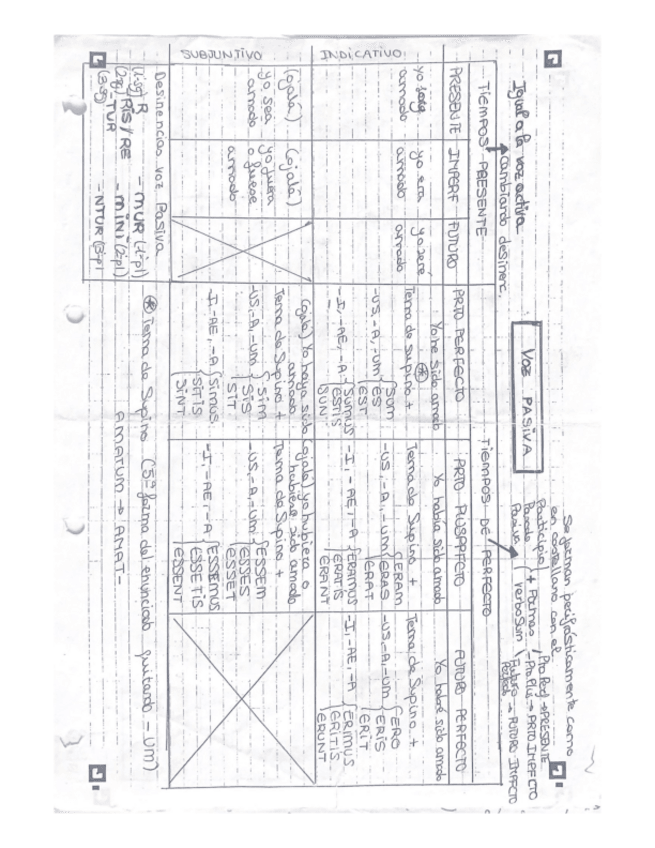 VOZ PASIVA
Igual a la voz activa
cambiando desinenc.
Se forman perifrásticamente como
en castellano con el
Participio
Pasado
Pasivo
+ Formas
verbo Sum
Pto Perf → PRESENTE
Pto Plus → PRTO IMPFCTO
Futuro Perfecto → FUTURO IMPFCTO
TIEMPOS PRESENTE
TIEMPOS DE PERFECTO
PRESENTE
IMPERF
FUTURO
PRTO PERFECTO
PRTO PLUSPRFCTO
FUTURO PERFECTO
INDICATIVO
yo soy
amado
yo era
amado
yo seré
amado
Yo he sido amado
Tema de supino +
-US, -A, -UM
SUM
ES
EST
-I, -AE, -A
SUMUS
ESTIS
SUNT
Yo había sido amado
Tema de Supino +
-US, -A, -UM
ERAM
ERAS
ERAT
-I, -AE, -A
ERAMUS
ERATIS
ERANT
Yo habré sido amado
Tema de Supino +
-US, -A, -UM
ERO
ERIS
ERIT
-I, -AE, -A
ERIMUS
ERITIS
ERUNT
SUBJUNTIVO
(ojalá)
yo sea
amado
(ojalá)
yo fuera
o fuese
amado
(ojalá) Yo haya sido
amado
Tema de Supino +
-US, -A, -UM
SIM
SIS
SIT
-I, -AE, -A
SIMUS
SITIS
SINT
(ojalá) yo hubiera o
hubiese sido amado
Tema de Supino +
-US, -A, -UM
ESSEM
ESSES
ESSET
-I, -AE, -A
ESSEMUS
ESSETIS
ESSENT
Desinencias Voz Pasiva
(1ªsg) R - MUR (1ªpl)
(2ªsg) RIS/RE - MINI (2ªpl)
(3ªsg) TUR - NTUR (3ªpl)
* Tema de Supino (5ª forma del enunciado quitando -UM)
AMATUM → AMAT-